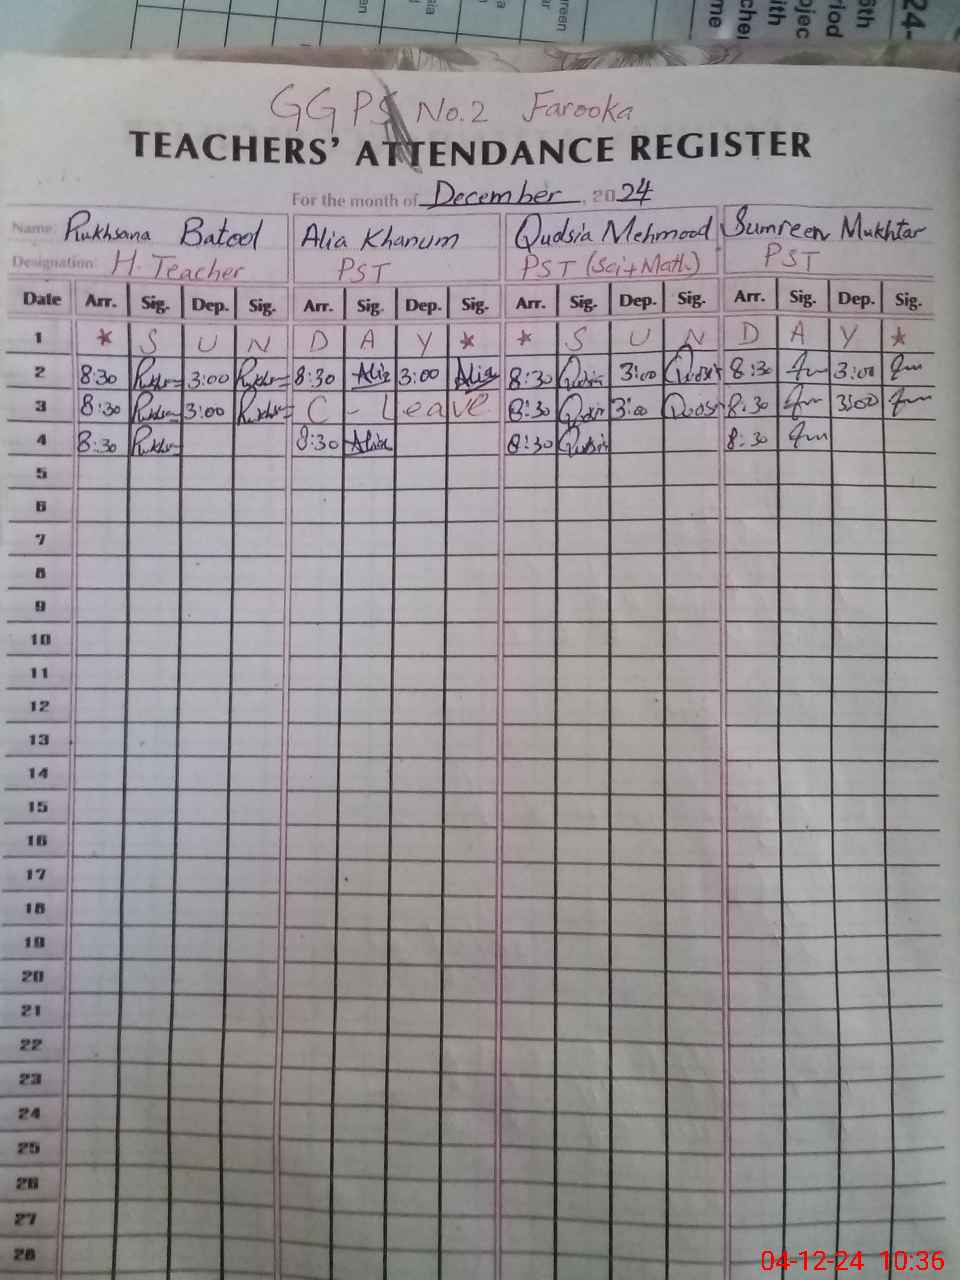 24-
6th
riod
bjec
ith
me
GGPS No.2 Farooka
TEACHERS' ATTENDANCE REGISTER
For the month of December, 2024
Name: Rukhsana Batool Alia Khanum Qudsia Mehmood Sumreen Mukhtar
Designation: H. Teacher PST PST (Sci+Math) PST
Date Arr. Sig. Dep. Sig. Arr. Sig. Dep. Sig. Arr. Sig. Dep. Sig. Arr. Sig. Dep. Sig.
1 * S U N D A Y * * S U N D A Y *
2 8:30 3:00 8:30 Alia 3:00 Alia 8:30 Qudsia 3:00 8:30 3:00
3 8:30 3:00 C - Leave 8:30 3:00 8:30 3:00
4 8:30 8:30 Alia 8:30 8:30
5
6
7
8
9
10
11
12
13
14
15
16
17
18
19
20
21
22
23
24
25
26
27
28
04-12-24 10:36